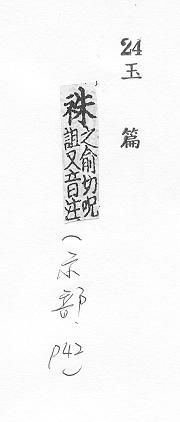 24玉篇
祩之俞切呪
詛又音注
(示部.P42)